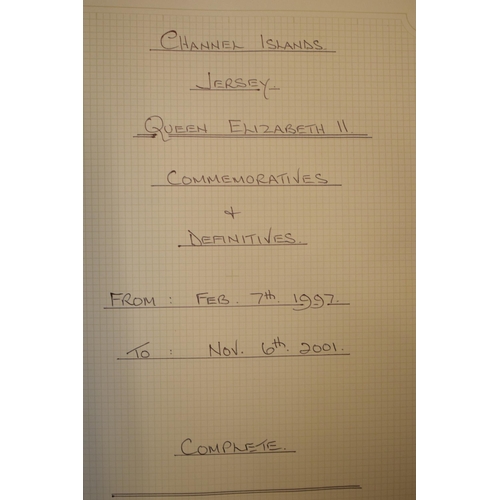 CHANNEL ISLANDS.
JERSEY.
QUEEN ELIZABETH II
COMMEMORATIVES
+
DEFINITIVES.
FROM : FEB. 7th. 1997.
TO : NOV. 6th. 2001.
COMPLETE.